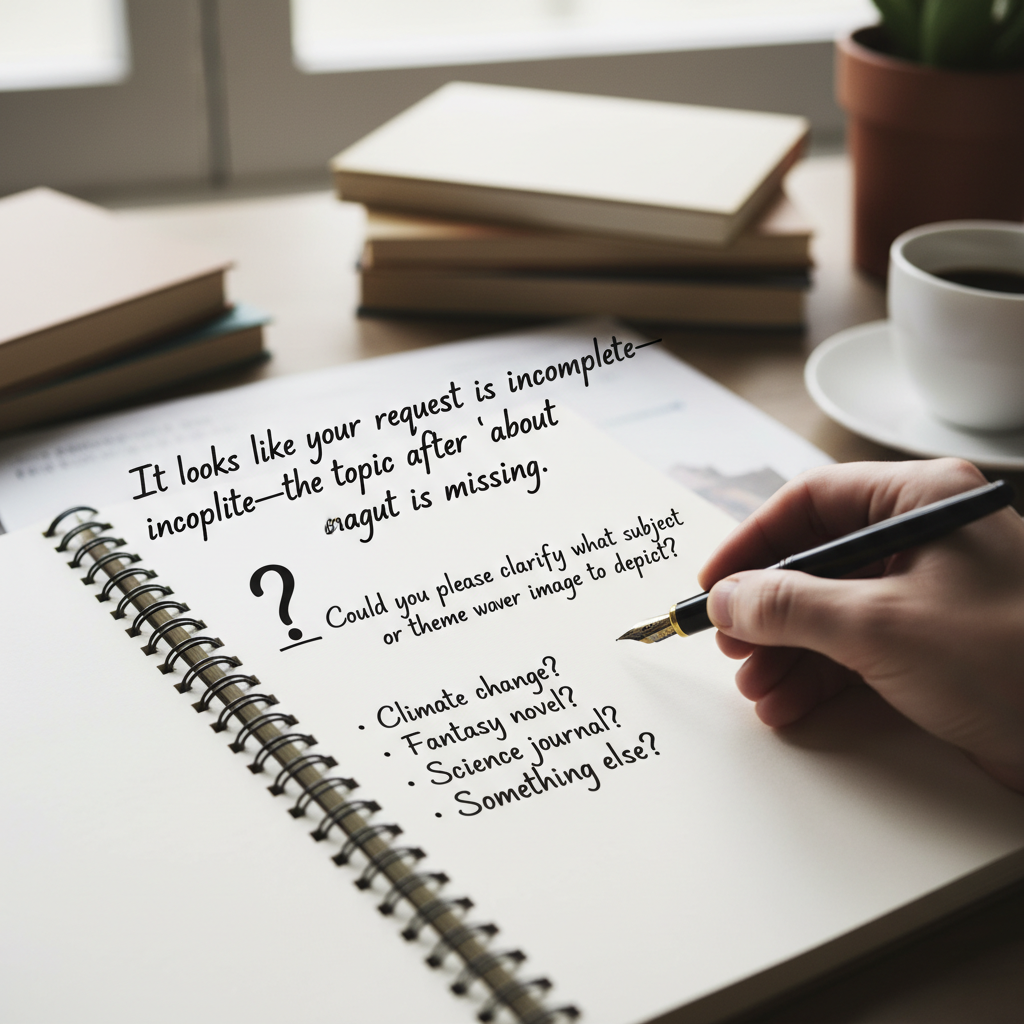 It looks like your request is incomplete—
incoplite—the topic after 'about
is missing.
?
Could you please clarify what subject
or theme waver image to depict?
• Climate change?
• Fantasy novel?
• Science journal?
• Something else?